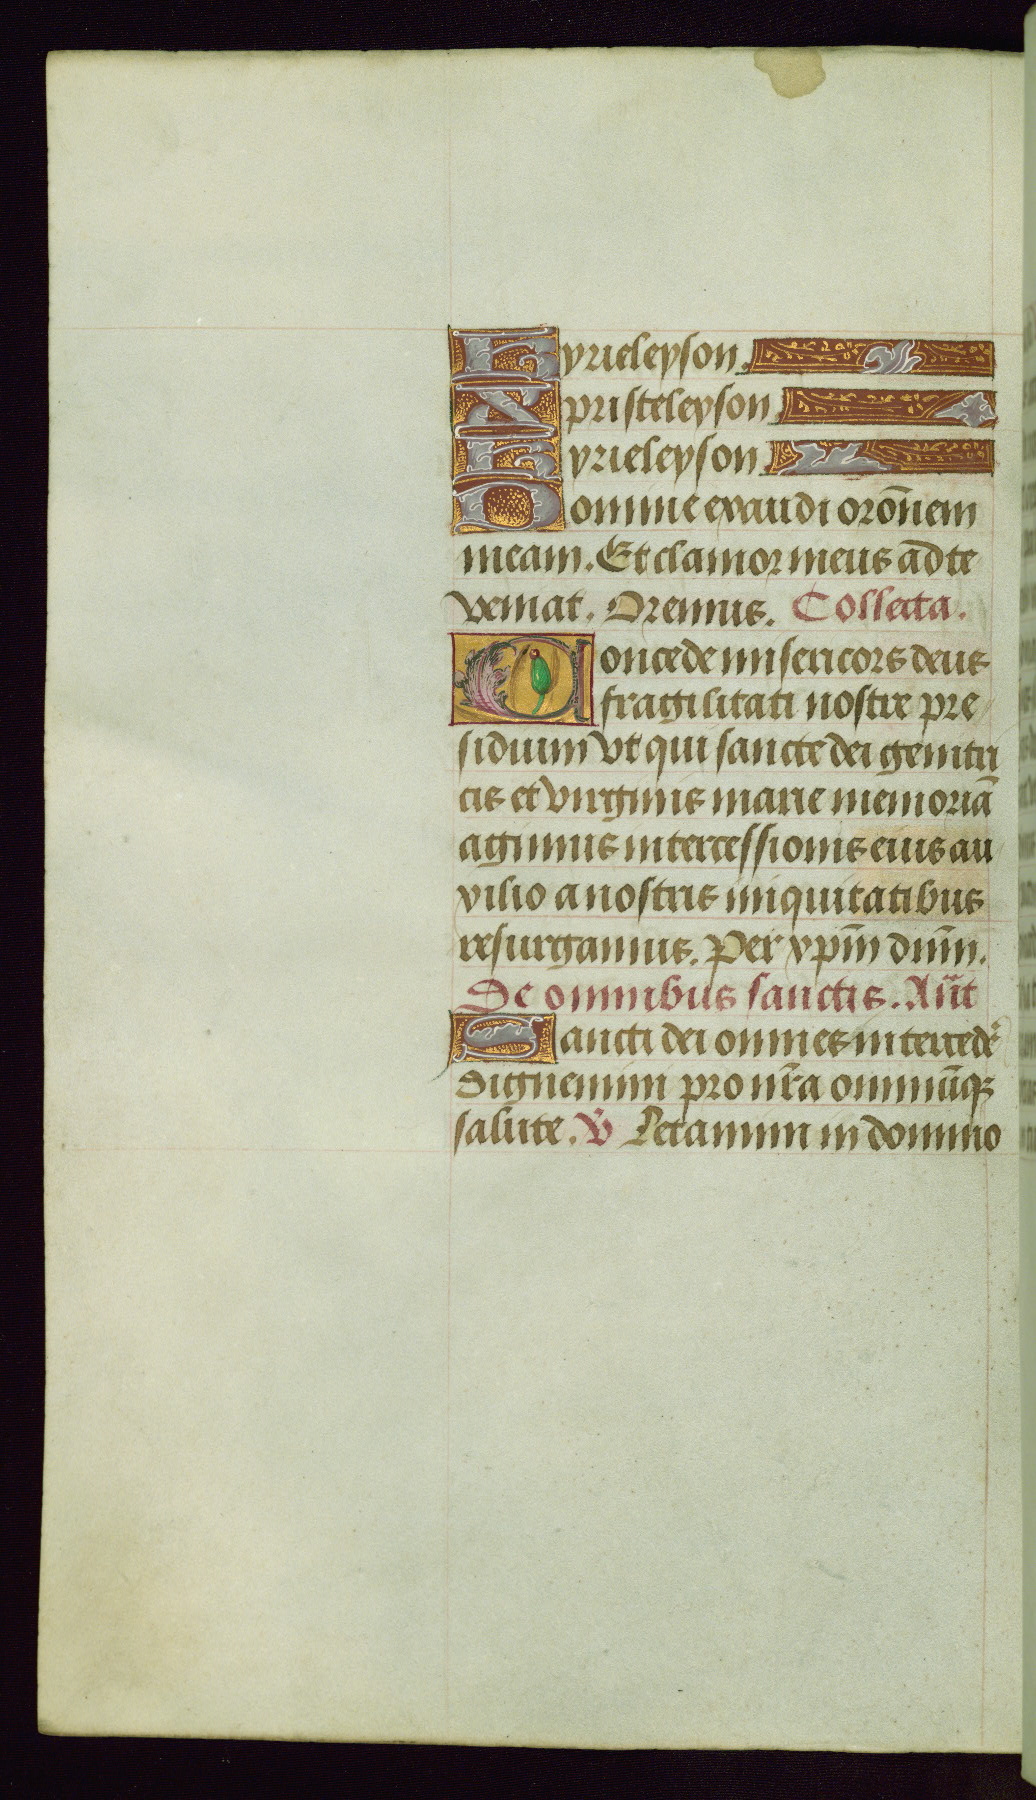 Kyrieleyson.
Xpristeleyson
Kyrieleyson
Domine exaudi orōnem
meam. Et clamor meus ad te
veniat. Oremus. Collecta.
Concede misericors deus
fragilitati nostre pre
sidium vt qui sancte dei genitri
cis et virginis marie memoriā
agimus intercessionis eius au
xilio a nostris iniquitatibus
resurgamus. Per xp̄m dn̄m.
De omnibus sanctis. An̄t
Sancti dei omnes intercedē
dignemini pro nr̄a omniūqꝫ
salute. V̄ Letamini in domino